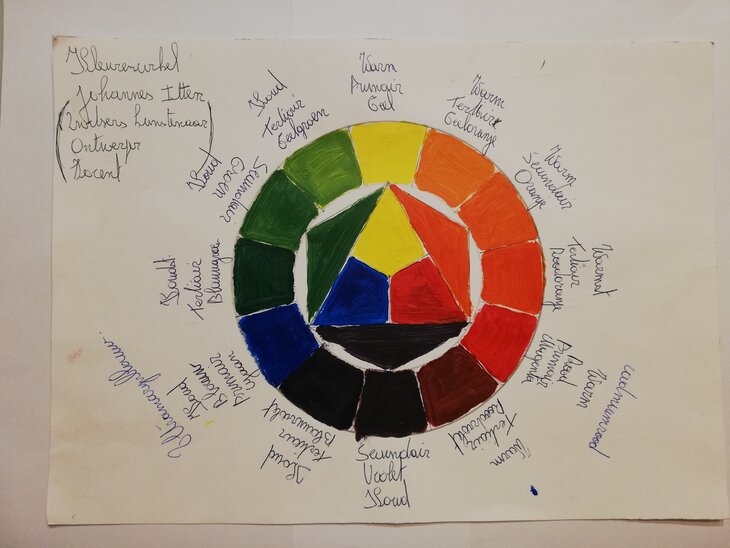 Kleurencirkel
Johannes Itten
Zwitsers kunstenaar
Ontwerpr
Docent
Warm
Primair
Geel
Warm
Tertiair
Geeloranje
Warm
Secundair
Oranje
Warmst
Tertiair
Roodoranje
Rood
Primair
Magenta
Warm
cadmiumrood
Warm
Tertiair
Roodviolet
Secundair
Violet
Koud
Koud
tertiair
Blauwviolet
Koud
Blauw
primair
cyaan
Koudst
Tertiair
Blauwgroen
Koud
Secundair
Groen
Koud
Tertiair
Geelgroen